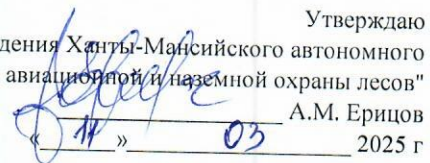 Утверждаю
дения Ханты-Мансийского автономного
авиационной и наземной охраны лесов"
А.М. Ерицов
« 11 » 03 2025 г